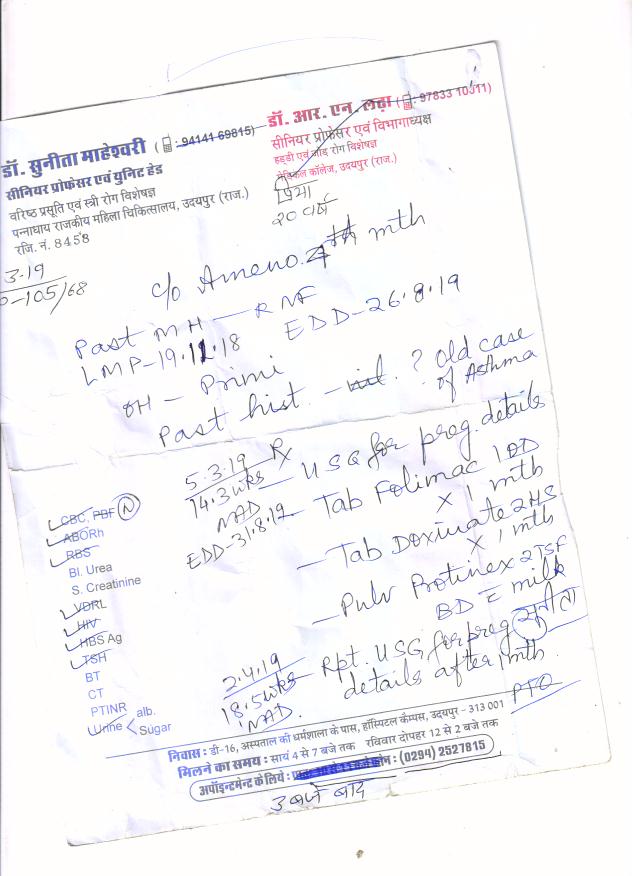 डॉ. सुनीता माहेश्वरी ( : 94141 69815)
सीनियर प्रोफेसर एवं युनिट हेड
वरिष्ठ प्रसूति एवं स्त्री रोग विशेषज्ञ
पन्नाधाय राजकीय महिला चिकित्सालय, उदयपुर (राज.)
रजि. नं. 8458
डॉ. आर. एन. लढ़ा ( : 97833 10011)
सीनियर प्रोफेसर एवं विभागाध्यक्ष
हड्डी एवं जोड़ रोग विशेषज्ञ
मेडिकल कॉलेज, उदयपुर (राज.)
प्रिया
२० वर्ष
3-19
-105/68
c/o Ameno. mth
Past MH - RNF
LMP-19.11.18 EDD-26.8.19
OH - Primi
Past hist. - nil. ? Old case
of Asthma
5.3.19 Rx
14.3 wks
NAD
EDD-31.8.19
- USG for preg. details
- Tab Folimac 1 OD
X 1 mth
- Tab Doxinate 2 HS
X 1 mth
- Pulv Protinex 2 TSF
BD c̄ milk
सुनीता
2.4.19
18.5 wks
NAD.
Rpt. USG for preg
details after 1 mth.
PTO
CBC, PBF N
ABORh
RBS
Bl. Urea
S. Creatinine
VDRL
HIV
HBS Ag
TSH
BT
CT
PTINR
Urine < alb.
Sugar
निवास : डी-16, अस्पताल की धर्मशाला के पास, हॉस्पिटल कैम्पस, उदयपुर - 313 001
मिलने का समय : सायं 4 से 7 बजे तक रविवार दोपहर 12 से 2 बजे तक
अपॉइन्टमेन्ट के लिये : फोन : (0294) 2527815
3 बजे बाद